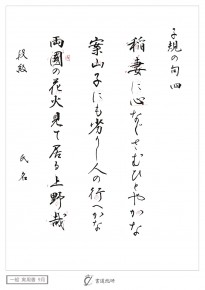 子規の句 四
稲妻に心なぐさむひとやかな
案山子にも劣りし人の行へかな
両國の花火見て居る上野哉
段級
氏名